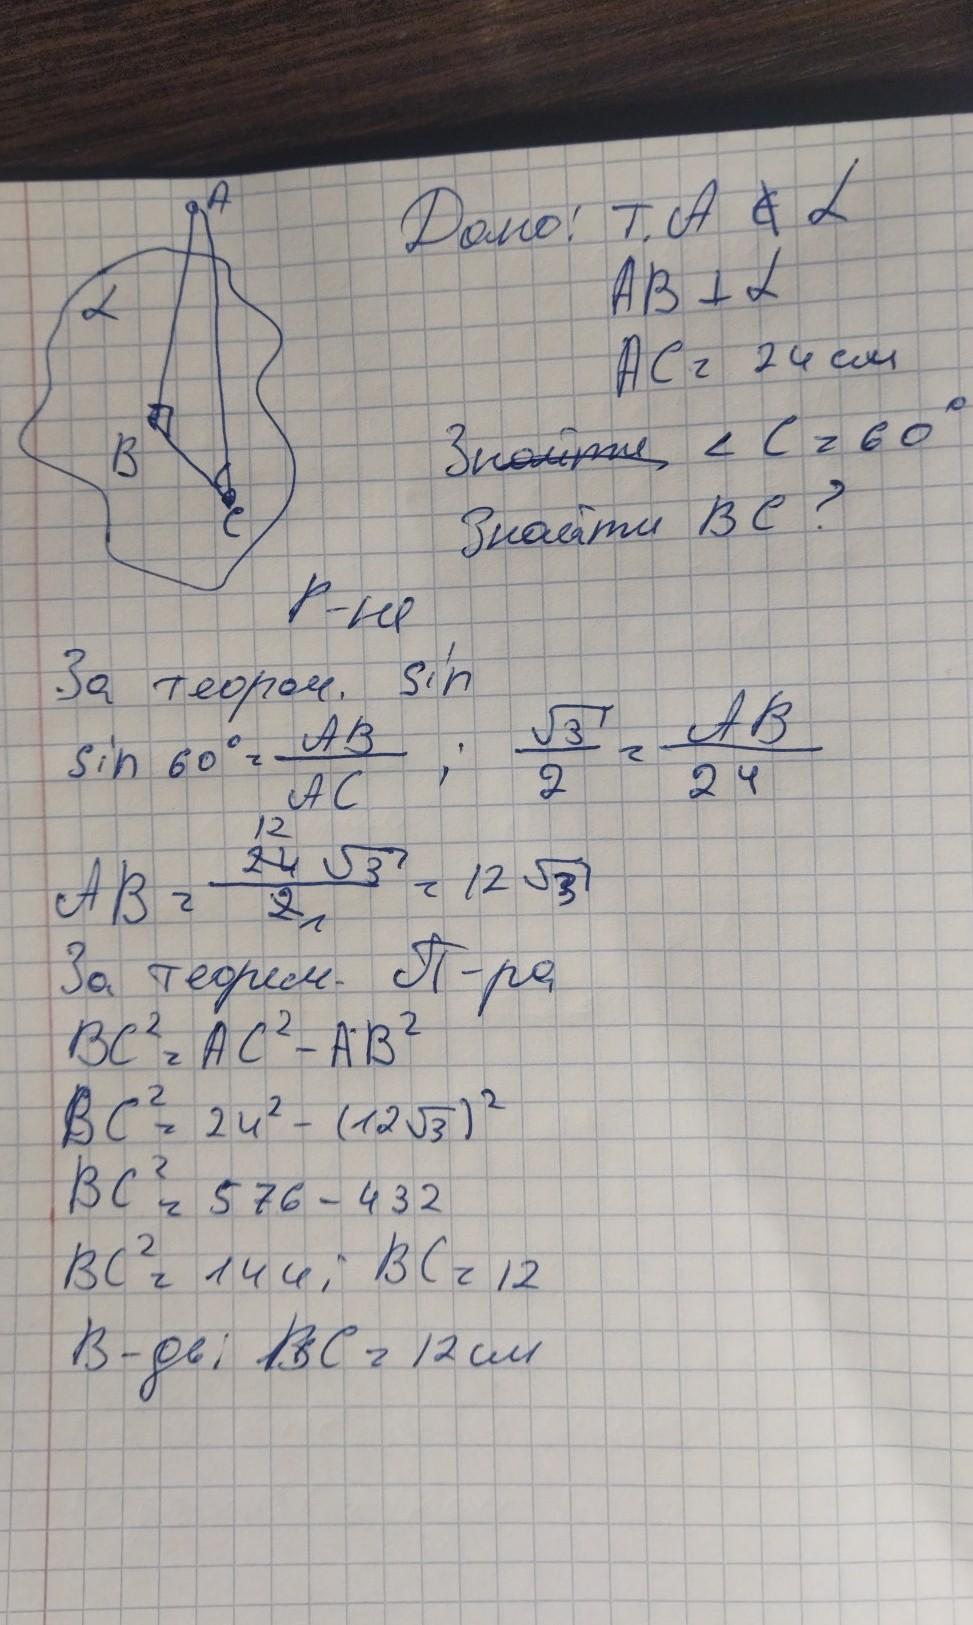 A
Дано: т. A ∉ α
α
AB ⊥ α
AC = 24 см
B
Знайти, < C = 60°
C
Знайти BC ?
Р-не
За теорем. sin
sin 60° = AB/AC ; √3/2 = AB/24
12
AB = 24 √3/2 1 = 12 √3
За теорем. П-ра
BC² = AC² - AB²
BC² = 24² - (12√3)²
BC² = 576 - 432
BC² = 144; BC = 12
В-дь: BC = 12 см